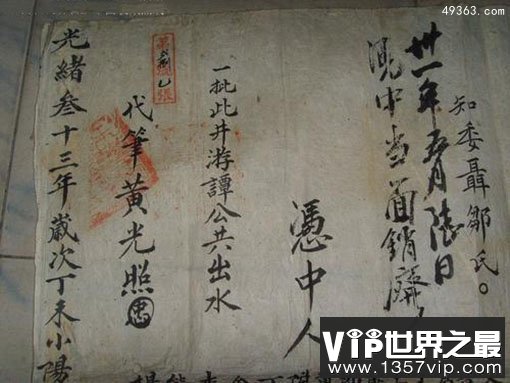 知委聶鄒氏。
卅一年五月陆日
中当面銷廢
憑中人
一批此井游譚公共出水
代筆黃光照
光緒叁十三年歲次丁未小陽
49363.com
VIP世界之最
www.1357vip.com